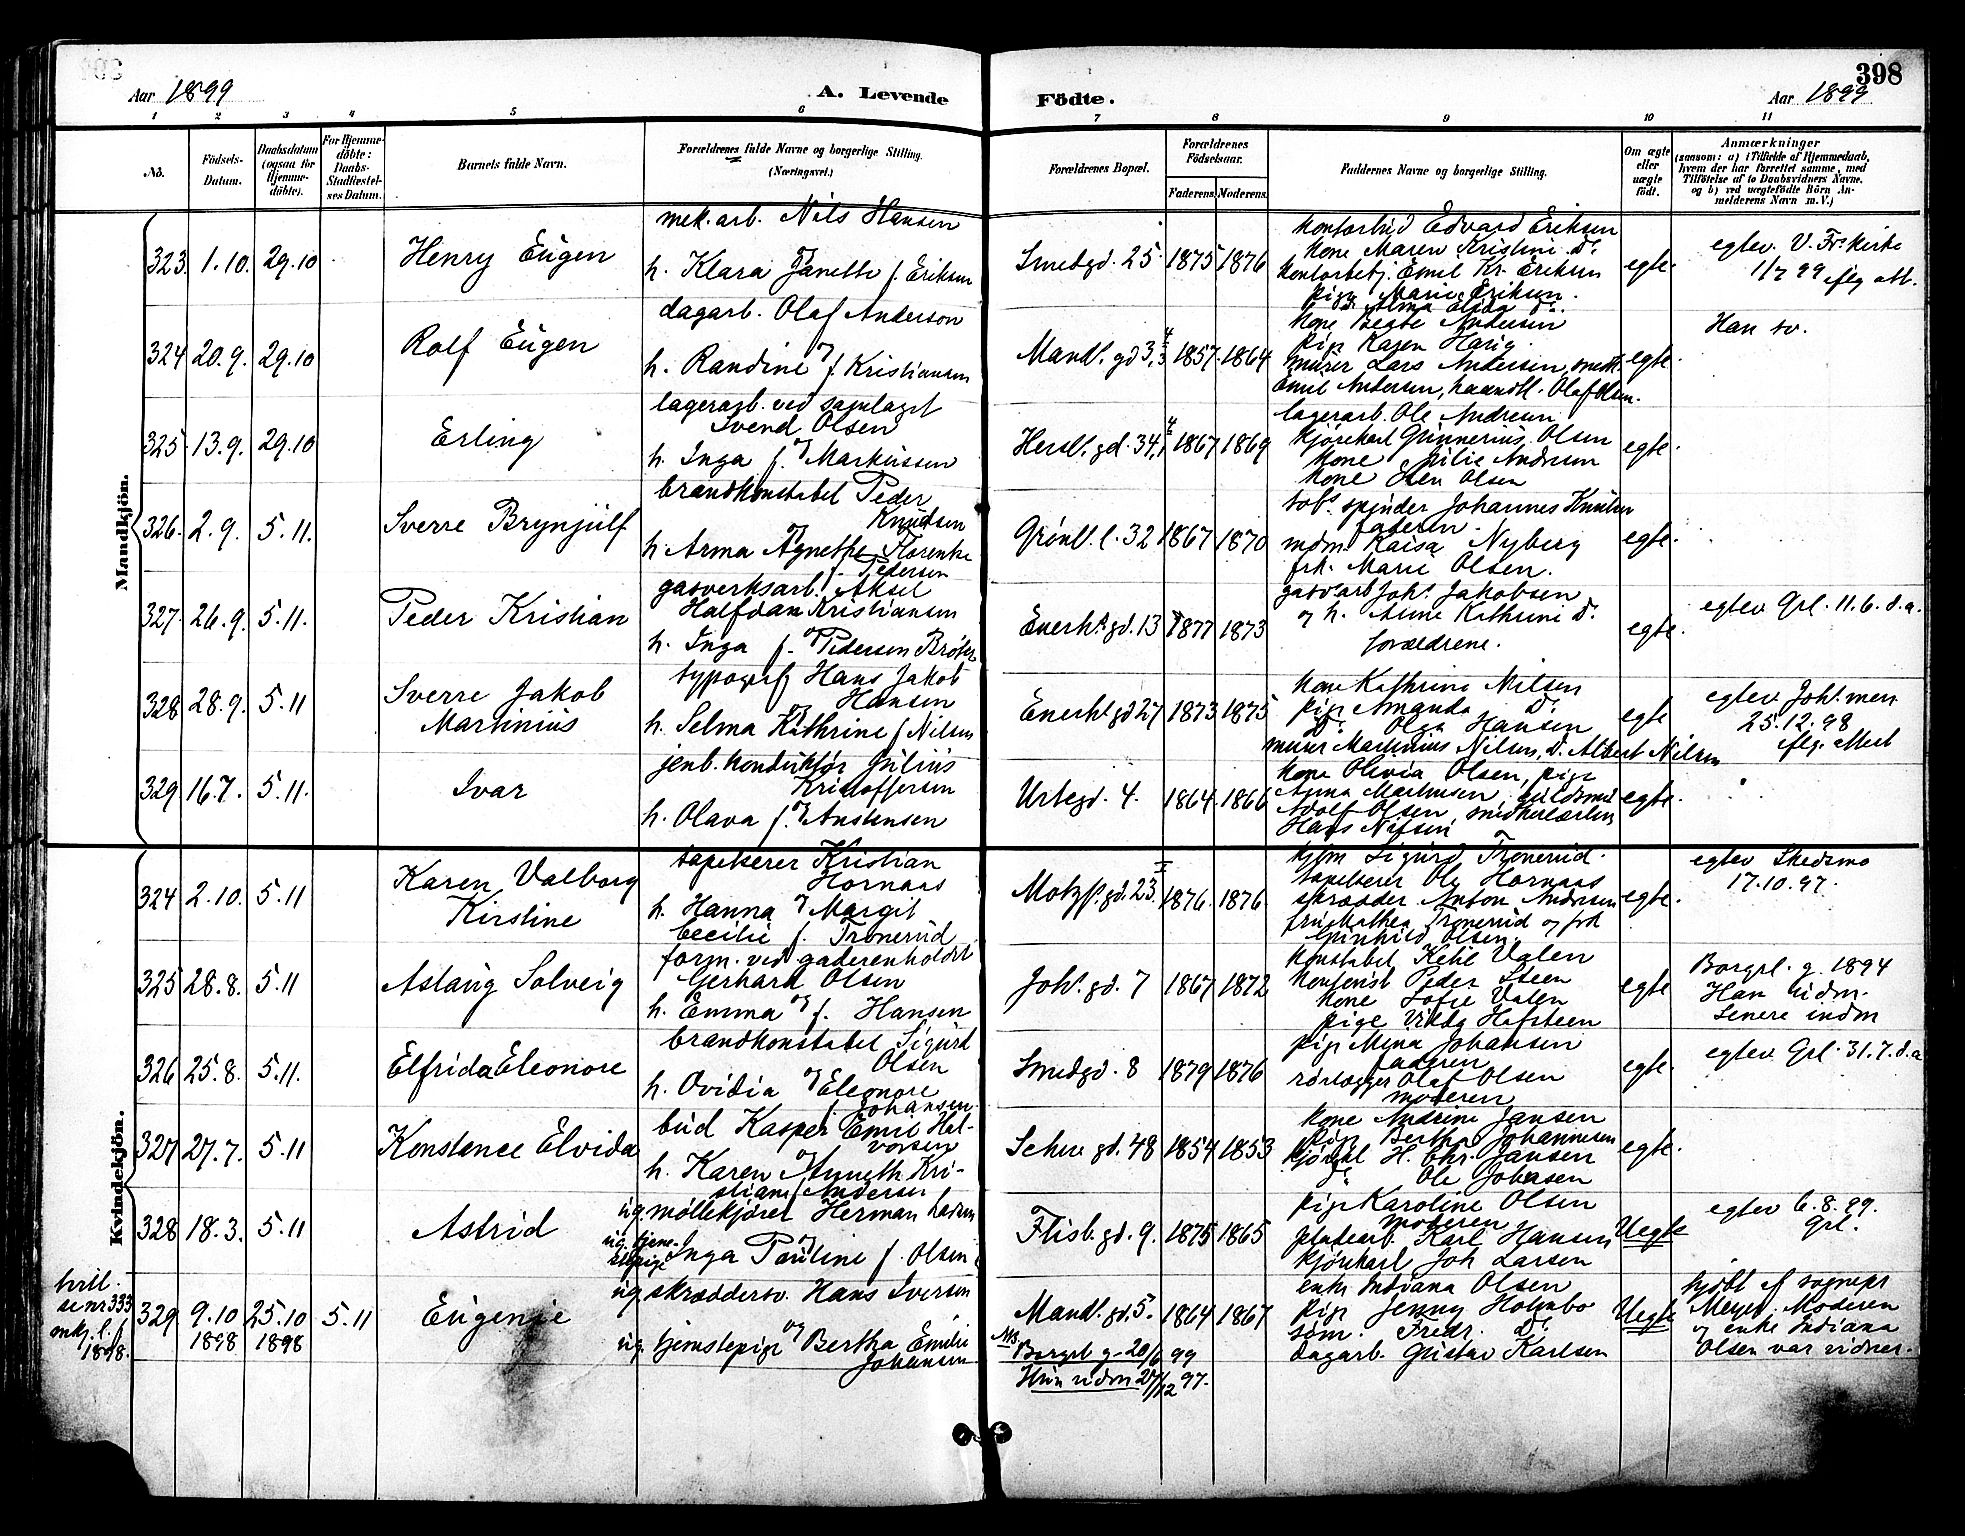 398
Aar 1899
A. Levende
Fødte.
Aar 1899
1 2 3 4 5 6 7 8 9 10 11
No.
Födsels-Datum.
Daabsdatum (ogsaa for Hjemmedöbte).
For Hjemmedöbte: Daabs-Stadfæstelses Datum.
Barnets fulde Navn.
Forældrenes fulde Navne og borgerlige Stilling. (Næringsvei.)
Forældrenes Bopæl.
Forældrenes Födselsaar.
Faderens. Moderens.
Faddernes Navne og borgerlige Stilling.
Om ægte eller uægte födt.
Anmærkninger
(saasom: a) i Tilfælde af Hjemmedaab,
hvem der har forrettet samme, med
Tilföielse af to Daabsvidners Navne.
og b) ved uægtefödte Börn An-
melderens Navn m.V.)
Mandkjön.
323. 1.10. 29.10 Henry Eugen
mek. arb. Nils Hansen
og
h. Klara Janette f. Eriksen
Smedgd. 25. 1875 1876
kontorbud Edvard Eriksen
kone Maren Kristine Do
kontorbetj. Emil Kr. Eriksen
pige Marie Eriksen.
Do Alma Do
egte.
egtev. V. Fr. kirke
1/7 99 iflg att.
324 20.9. 29.10 Rolf Eugen
dagarb. Olaf Anderson
og
h. Randine f. Kristiansen
Mandl. gd 3, 1857. 1864
kone Andersen
pige Karen Harig.
murer Lars Andersen, snedk.
Emil Andersen, haandl. Olaf Olsen.
egte.
Han sv.
325 13.9. 29.10 Erling
lagerarb. ved samlaget
Svend Olsen
og
h. Inga f. Markussen
Hersl. gd. 34, 1867 1869
lagerarb. Ole Andresen
kjørekarl Gunnerius Olsen
kone Julie Andresen
kone Olsen
egte.
326. 2.9. 5.11. Sverre Brynjulf
brandkonstabel Peder
Knudsen
og
h. Anna Agnethe Florentse
f. Pedersen
Grønl. l. 32 1867 1870
tobs. spinder Johannes Knutsen
faderen.
mdm Kaisa Nyberg
frk. Marie Olsen.
egte.
327. 26.9. 5.11. Peder Kristian
gasverksarb. Aksel
Halfdan Kristiansen
og
h. Inga f. Pedersen Brøter
Enerh. gd. 13 1877 1873
gasv.arb Joh. Jakobsen
og h. Anne Kathrine Do
forældrene.
egte.
egtev Grl. 11.6. d.a.
328 28.9. 5.11 Sverre Jakob
Martinius
typograf Hans Jakob
Hansen
og
h. Selma Kathrine f Nilsen
Enerh. gd 27 1873 1875
kone Kathrine Nilsen
pige Amanda Do
Do Olga Hansen
murer Martinius Nilsen, Do. Albert Nilsen
egte
egtev Joh. men
25.12.98
iflg. Attest
329 16.7. 5.11. Ivar
jenb. konduktør Julius
Kristoffersen
h. Olava f. og Anstensen
Urtegd. 4. 1864. 1866
kone Olivia Olsen, pige
Anna Mathisen, guldsmed
Adolf Olsen, snedkerlærling
Hans Nilsen
egte.
Kvindekjön.
324 2.10. 5.11 Karen Valborg
Kirstine
tapetserer Kristian
Hornaas
h. Hanna og Margit
Cecilie f. Tronerud
Motzf. gd. 23 I 1876. 1876
kjøm Sigurd Tronerud.
tapetserer Ole Hornaas
skrædder Anton Andersen
fru Mathea Tronerud og frk
Gunhild Olsen.
egte.
egtev Skedsmo
17.10.97.
325 28.8. 5.11 Aslaug Solveig
form. ved gaderenholdet
Gerhard Olsen
h. Emma og f. Hansen
Joh. gd. 7 1867 1872
konstabel Ketil Valen
kontorist Peder Steen
kone Sofie Valen
pige Valdg Hafsteen
egte
Borgrl. g. 1894
Han udm.
Senere indm
326 25.8. 5.11. Elfrida Eleonore
brandkonstabel Sigurd
Olsen
h. Ovidia og Eleonore
f. Johansen.
Smedgd. 8 1879 1876
pige Mina Johansen
faderen
rørlægger Olaf Olsen
moderen
egte.
egtev Grl. 31.7. d.a
327 27.7. 5.11 Konstance Elvida
bud Kasper Emil Hal-
vorsen
h. Karen og Anneth Kri-
stiane f Andersen
Schw gd. 48 1854 1853
kone Andrine Jansen
pige Bertha Johannesen
kjørekl H. Chr. Jansen
Do Ole Johnsen
egte.
328 18.3. 5.11 Astrid
ug. møllekjører Herman Larsen
og
ug. tjene-
stepige Inga Pauline f. Olsen
Flisb. gd. 9. 1875 1865
pige Karoline Olsen
moderen
pladearb. Karl Hansen
kjørekarl Joh Larsen
Uegte
egtev 6.8.99.
Grl.
tvill.
se nr 333
mkj. l. f
1898.
329 9.10 1898 25.10 1898 5.11 Eugenie
ug. skræddersv. Hans Iversen
og
ug. tjenstepige Bertha Emilie
Johansen
Mandl. gd. 5. 1864 1867
enke Indiana Olsen
pige Jenny Holmbo
søm. Fredr. Do
dagarb. Gustav Karlsen
Uegte
hjdbt af sognepr
Meyer. Moderen
og enke Indiana
Olsen var vidner.
NB.
Borgrl g. 20/6 99
Hun udm 27/12 97.